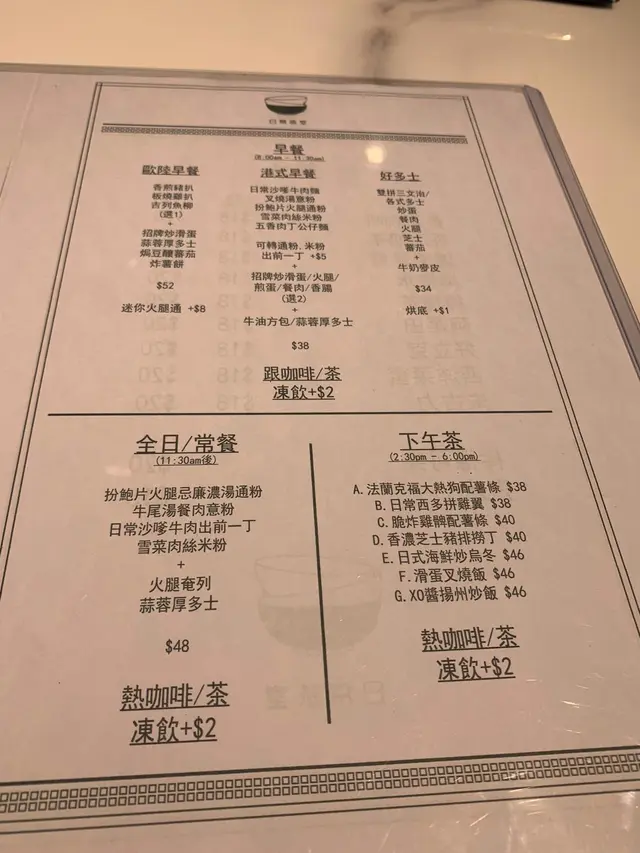 日常茶室
早餐
(8:00am - 11:30am)
歐陸早餐
香煎豬扒
板燒雞扒
吉列魚柳
(選1)
+
招牌炒滑蛋
蒜蓉厚多士
焗豆釀蕃茄
炸薯餅
$52
迷你火腿通 +$8
港式早餐
日常沙嗲牛肉麵
叉燒湯意粉
扮鮑片火腿通粉
雪菜肉絲米粉
五香肉丁公仔麵
可轉通粉.米粉
出前一丁 +$5
+
招牌炒滑蛋/火腿/
煎蛋/餐肉/香腸
(選2)
+
牛油方包/蒜蓉厚多士
$38
好多士
雙拼三文治/
各式多士
炒蛋
餐肉
火腿
芝士
蕃茄
+
牛奶麥皮
$34
烘底 +$1
跟咖啡/茶
凍飲+$2
全日/常餐
(11:30am後)
扮鮑片火腿忌廉濃湯通粉
牛尾湯餐肉意粉
日常沙嗲牛肉出前一丁
雪菜肉絲米粉
+
火腿奄列
蒜蓉厚多士
$48
熱咖啡/茶
凍飲+$2
下午茶
(2:30pm - 6:00pm)
A.法蘭克福大熱狗配薯條 $38
B.日常西多拼雞翼 $38
C.脆炸雞髀配薯條 $40
D.香濃芝士豬排撈丁 $40
E.日式海鮮炒烏冬 $46
F.滑蛋叉燒飯 $46
G.XO醬揚州炒飯 $46
熱咖啡/茶
凍飲+$2